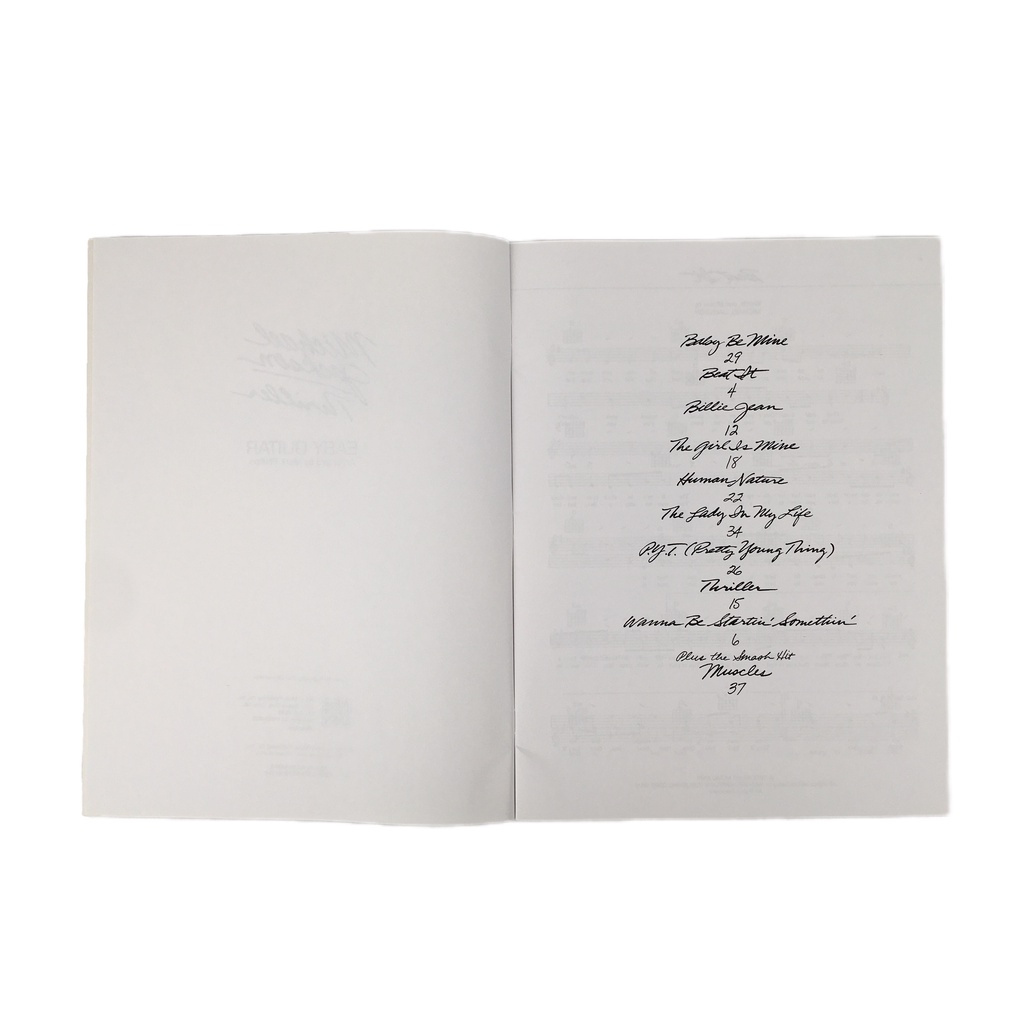 Baby Be Mine
29
Beat It
4
Billie Jean
12
The Girl Is Mine
18
Human Nature
22
The Lady In My Life
34
P.Y.T. (Pretty Young Thing)
26
Thriller
15
Wanna Be Startin' Somethin'
6
Plus the Smash Hit
Muscles
37
Michael
Jackson
Thriller
EASY GUITAR